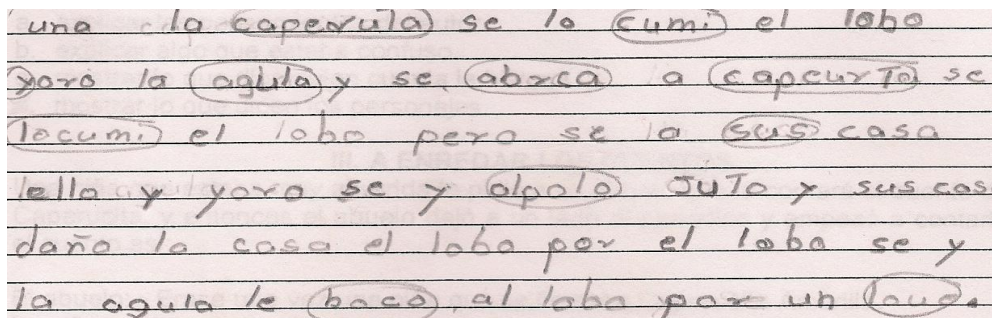 una la caperula se lo cumi el lobo
yoro la agula y se abrca a capcurTa se
locumi el lobo pero se la sus casa
lello y yoro se y alpolo JuTo y sus cas
daño la casa el lobo por el lobo se y
la agula le baco al lobo por un